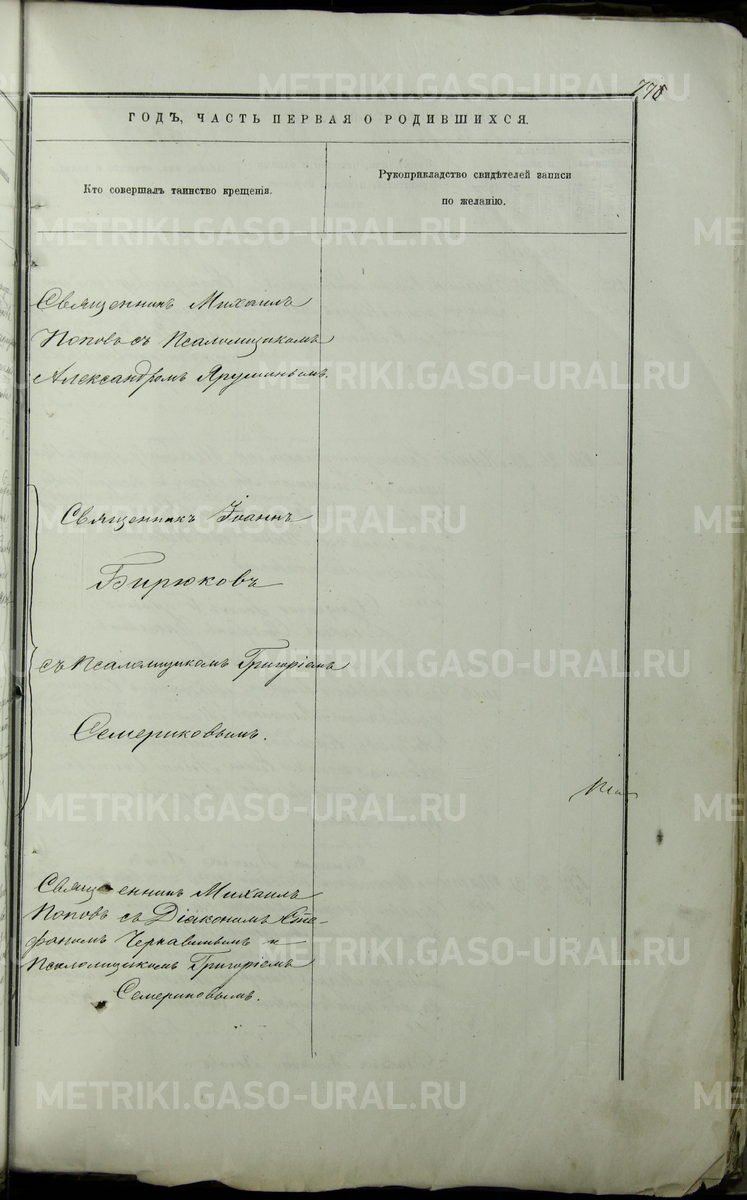 778
ГОДЪ, ЧАСТЬ ПЕРВАЯ О РОДИВШИХСЯ.
Кто совершалъ таинство крещенія.
Рукоприкладство свидѣтелей записи
по желанію.
Священникъ Михаилъ
Поповъ съ Псаломщикомъ
Александромъ Ярушинымъ.
Священникъ Іоаннъ
Бирюковъ
съ Псаломщикомъ Григоріемъ
Семериковымъ.
Священникъ Михаилъ
Поповъ съ Діакономъ Сте-
фаномъ и
Псаломщикомъ Григоріемъ
Семериковымъ.
METRIKI.GASO-URAL.RU
METRIKI.GASO-URAL.RU
METRIKI.GASO-URAL.RU
METRIKI.GASO-URAL.RU
METRIKI.GASO-URAL.RU
METRIKI.GASO-URAL.RU
METRIKI.GASO-URAL.RU
METRIKI.GASO-URAL.RU